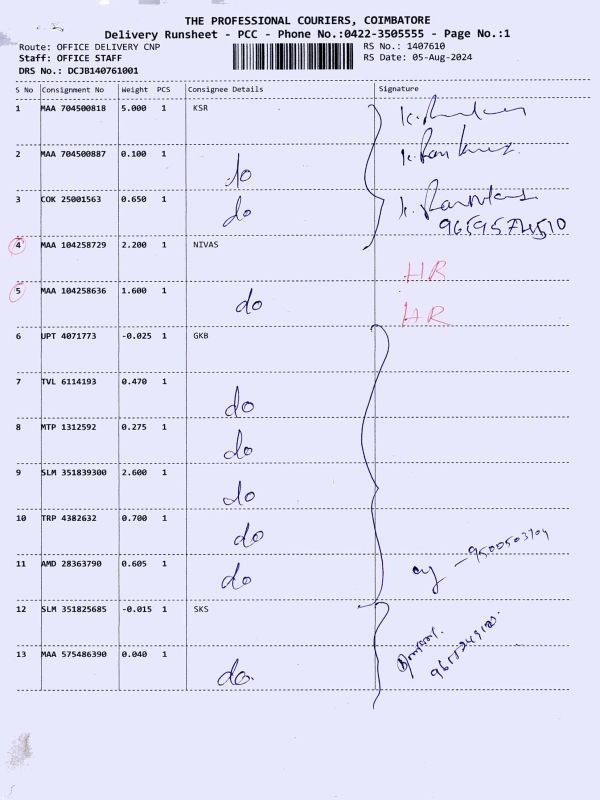 THE PROFESSIONAL COURIERS, COIMBATORE
Delivery Runsheet - PCC - Phone No.:0422-3505555 - Page No.:1
Route: OFFICE DELIVERY CNP RS No.: 1407610
Staff: OFFICE STAFF RS Date: 05-Aug-2024
DRS No.: DCJB140761001
S No Consignment No Weight PCS Consignee Details Signature
1 MAA 704500818 5.000 1 KSR
2 MAA 704500887 0.100 1 do
3 COK 25001563 0.650 1 do
4 MAA 104258729 2.200 1 NIVAS HR
5 MAA 104258636 1.600 1 do HR
6 UPT 4071773 -0.025 1 GKB
7 TVL 6114193 0.470 1 do
8 MTP 1312592 0.275 1 do
9 SLM 351839300 2.600 1 do
10 TRP 4382632 0.700 1 do
11 AMD 28363790 0.605 1 do
12 SLM 351825685 -0.015 1 SKS
13 MAA 575486390 0.040 1 do.